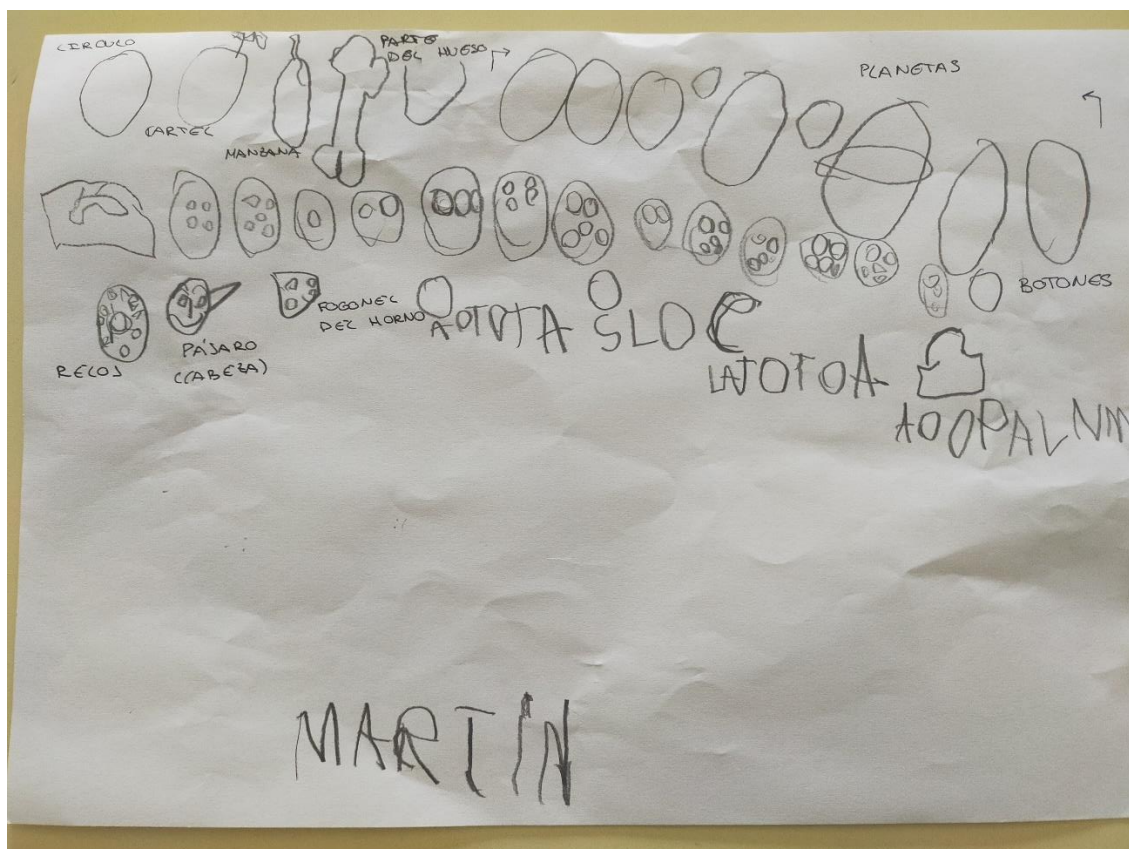 CIRCULO
CARTEL
MANZANA
PARTE
DEL HUESO
PLANETAS
BOTONES
RELOJ
PÁJARO
(CABEZA)
FOGONEL
DEL HORNO
SLOC
LAJOTOA
AOOPALNM
MARTÍN